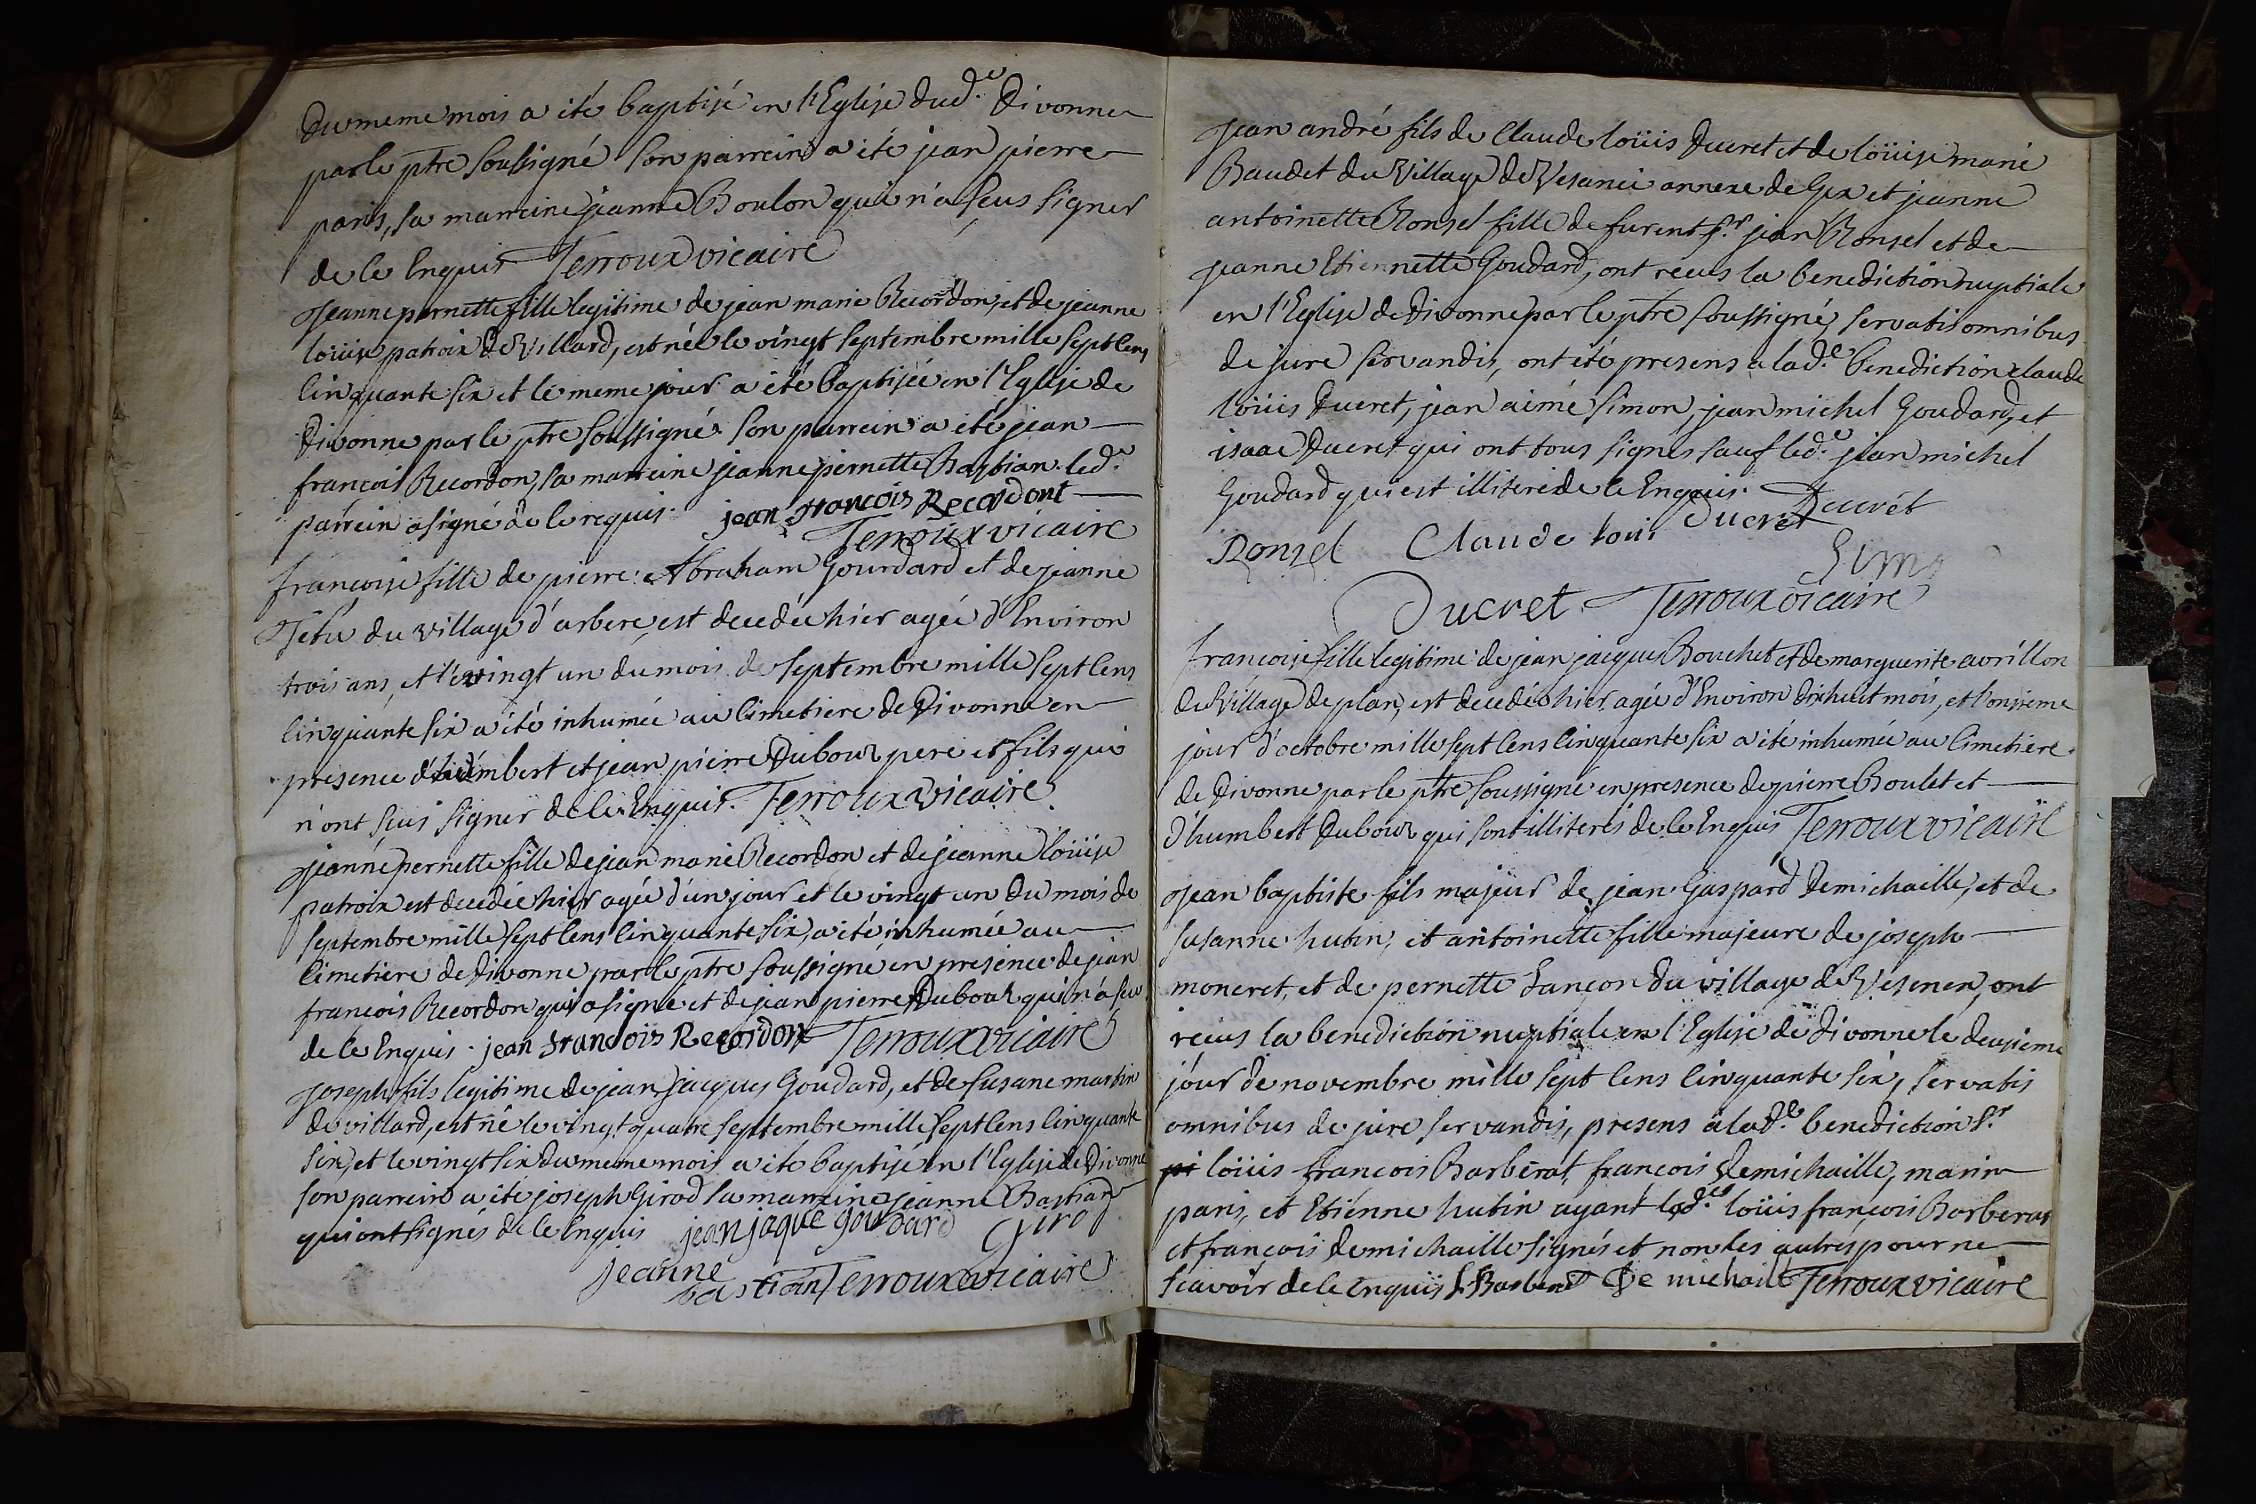 du meme mois a été baptisé en l'Eglise dud.e Divonne
par le ptre soussigné son parrein a été jean pierre
paris, sa marreine jeanne Boulon qui n'a sçus signer
de ce Enquis Terroux vicaire
Jeanne pernette fille legitime de jean marie Recordon, et de jeanne
loüise patroix de Villard, est née le vingt septembre mille sept cens
cinquante six et le meme jour a été baptisée en l'Eglise de
Divonne par le ptre soussigné. son parrein a été jean
françois Recordon, sa marreine jeanne pernette Bastian. led.e
parrein a signé de ce requis. jean francois Recordont
Terroux vicaire
françoise fille de pierre Abraham Gourdard et de jeanne
Tetu du village d'arbere, est decedée hier agée d'Environ
trois ans, et le vingt un du mois de septembre mille sept cens
cinquante six a été inhumée au cimetiere de Divonne en
presence d'humbert et jean pierre Dubour pere et fils qui
n'ont sçus signer de ce Enquis. Terroux vicaire
Jeanne pernette fille de jean marie Recordon et de jeanne loüise
patroix est decedée hier agée d'un jour et le vingt un du mois de
septembre mille sept cens cinquante six, a été inhumée au
cimetiere de Divonne par le ptre soussigné en presence de jean
françois Recordon qui a signé et de jean pierre Dubour qui n'a sçu
de ce Enquis. jean francois Recordon Terroux vicaire
Joseph fils legitime de jean jacques Goudard, et de susane martin
de villard, est né le vingt quatre septembre mille sept cens cinquante
six, et le vingt six du meme mois a été baptisé en l'Eglise de Divonne
son parrein a été joseph Girod sa marreine jeanne Bastian
qui ont signés de ce Enquis jean jaque goudard Girod
jeanne
bastian Terroux vicaire
Jean andré fils de Claude loüis Ducret et de loüise marie
Baudet du Village de Vesanci annexe de Gex et jeanne
antoinette Ronsel fille de furent s.r jean Ronsel et de
jeanne Etiennette Goudard, ont recus la benediction nuptiale
en l'Eglise de Divonne par le ptre soussigné, servatis omnibus
de jure servandis, ont été presens a lad.e benediction claude
loüis Ducret, jean aimé simon, jean michel Goudard, et
isaac Ducret qui ont tous signés sauf led.e jean michel
Goudard qui est illiteré de ce Enquis. Ducret
Ronsel Claude loui Ducret
Simo
Ducret Terroux vicaire
françoise fille legitime de jean jacques Bouchet et de marguerite avrillon
du Village de plan, est decedée hier agée d'Environ dixhuit mois, et l'onsieme
jour d'octobre mille sept cens cinquante six a été inhumée au cimetiere
de Divonne par le ptre soussigné en presence de pierre Boulet et
d'humbert Dubour qui sont illiterés de ce Enquis Terroux vicaire
Jean baptiste fils majeur de jean Gaspard Demichaille, et de
susanne hutin, et antoinette fille majeure de joseph
moneret, et de pernette Lançon du village de Vesenex, ont
recus la benediction nuptiale en l'Eglise de Divonne le deusieme
jour de novembre mille sept cens cinquante six, servatis
omnibus de jure servandis, presens a lad.e benediction s.r
pi loüis francois Barberat, francois Demichaille, marin
paris, et Etienne hutin ayant lesd.es loüis françois Barberat
et françois demichaille signés et non les autres pour ne
scavoir de ce Enquis L. Barberat De michaille Terroux vicaire